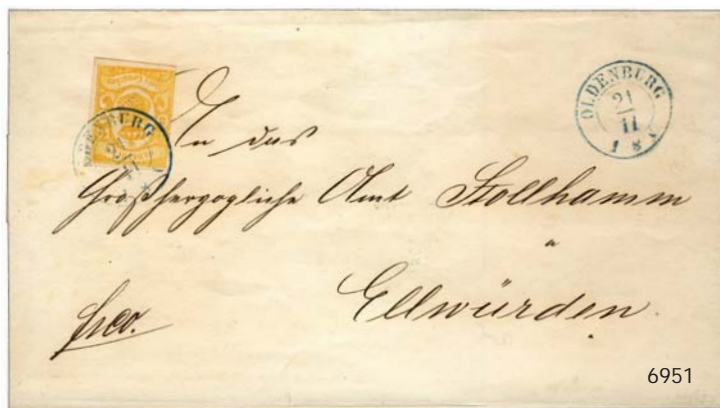 OLDENBURG
21
11
1 8
An das
Großherzogliche Amt Stollhamm
a
Ellwürden.
frco.
6951